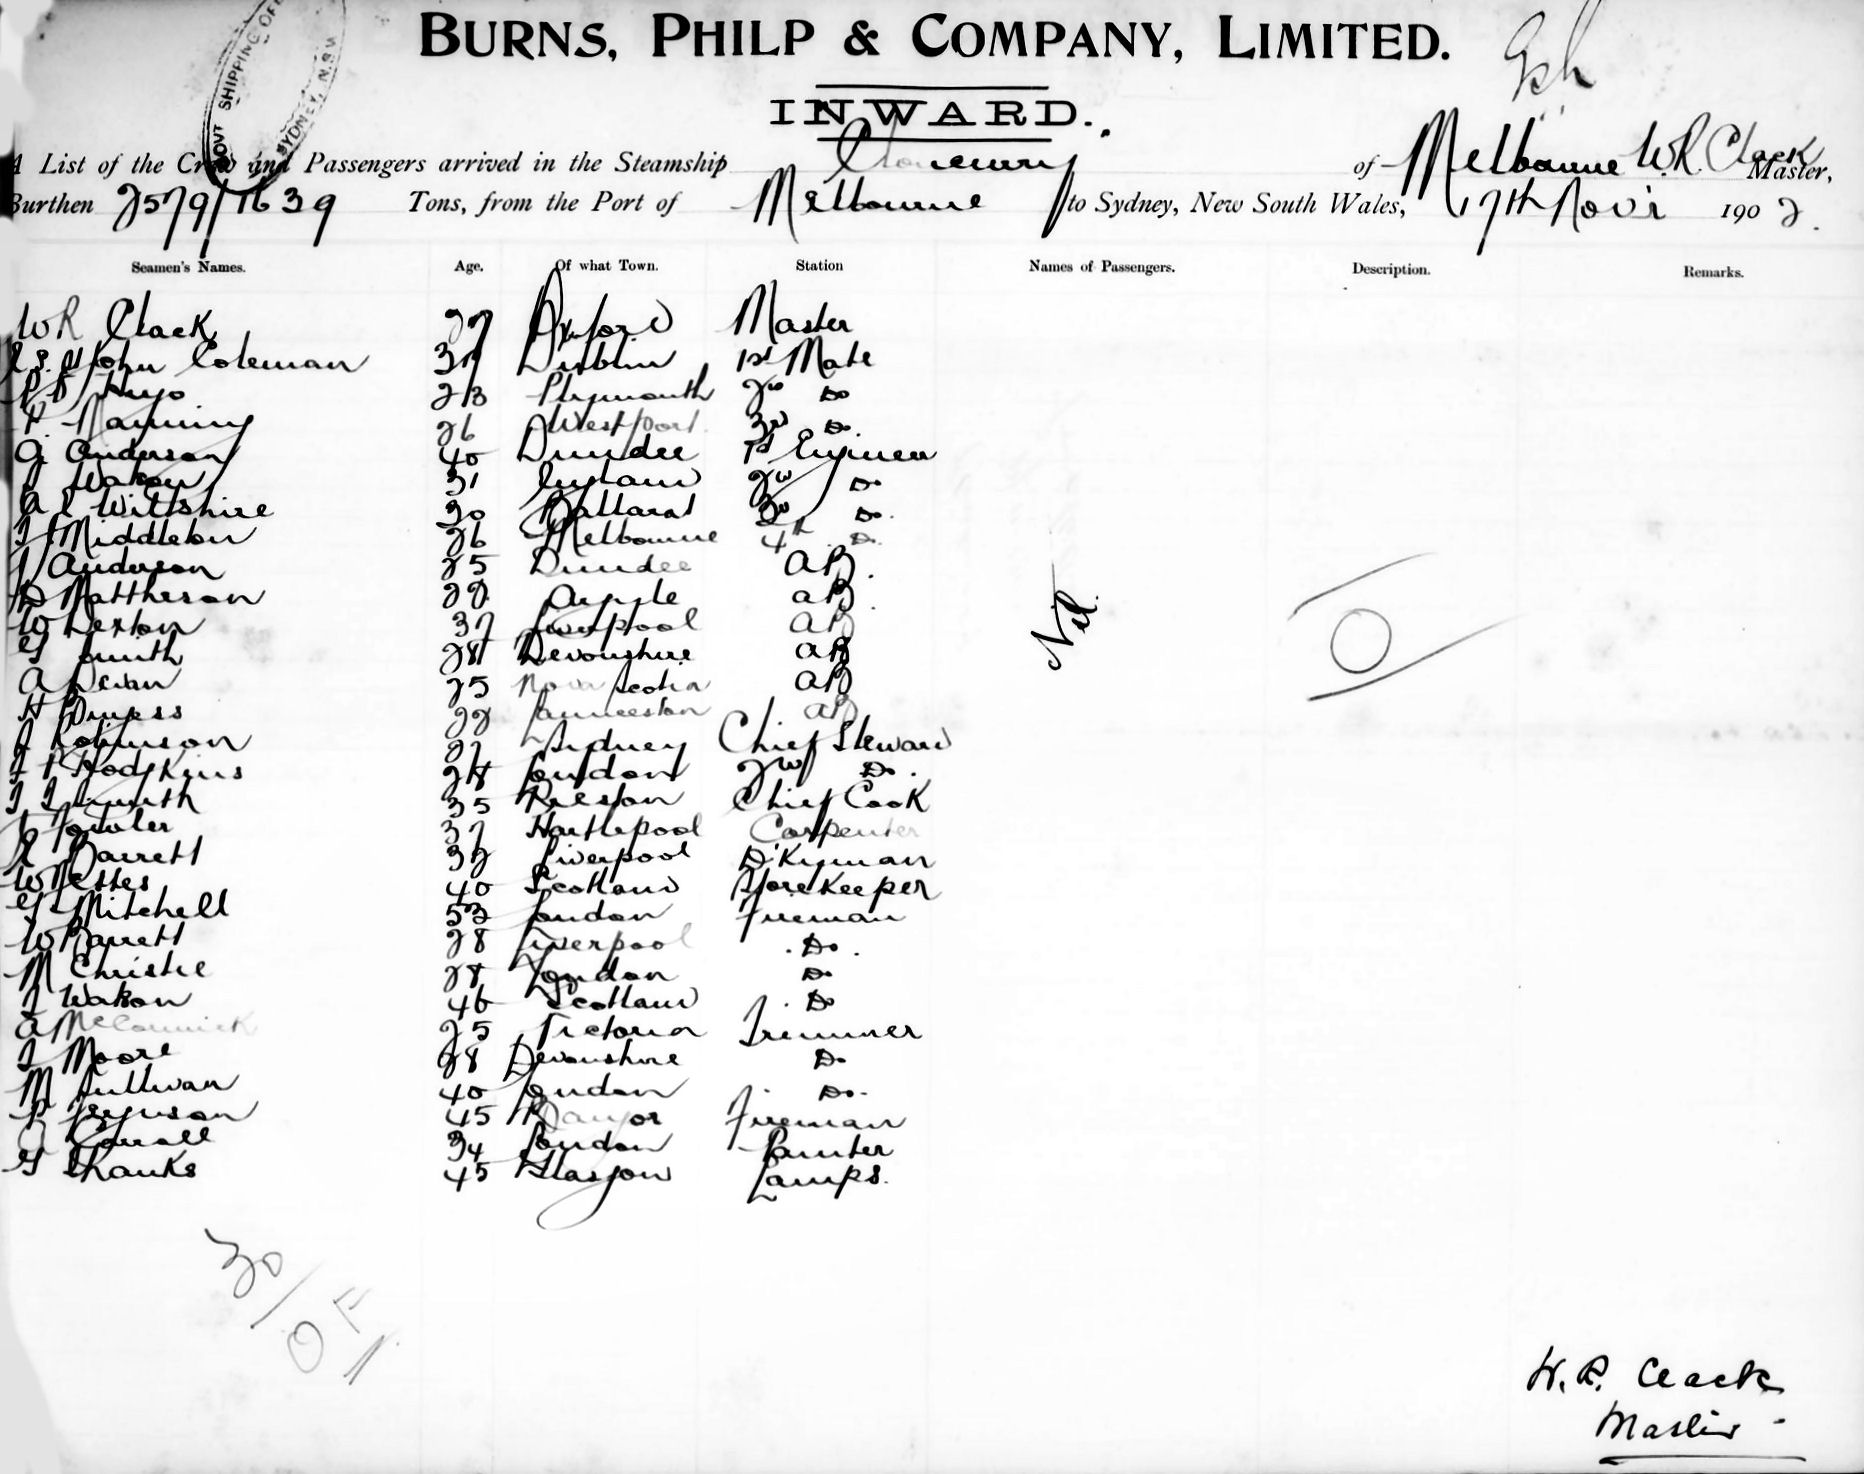 GOVT SHIPPING OF
SYDNEY, N.S.W
BURNS, PHILP & COMPANY, LIMITED.
INWARD.
A List of the Crew and Passengers arrived in the Steamship Cloncurry of Melbourne W.R. Clack Master,
Burthen 2579/1639 Tons, from the Port of Melbourne to Sydney, New South Wales, 17th Nov'r 1902.
Seamen's Names. Age. Of what Town. Station Names of Passengers. Description. Remarks.
W R Clack 27 Oxford Master
St John Coleman 37 Dublin 1st Mate
23 Plymouth 2nd Do
Manning 26 Westport 3rd Do.
G Anderson 40 Dundee 1st Engineer
Watson 31 England 2nd Do
A E Wiltshire 30 Ballarat 3rd Do.
Middleton 26 Melbourne 4th Do.
Anderson 25 Dundee AB.
D Mattheson 22 Argyle AB.
W Dexton 37 Liverpool AB
G Smith 28 Devonshire AB
A Dewan 25 Nova Scotia AB
H Burgess 22 Launceston AB
J Robinson 27 Sydney Chief Steward
Hodgkins 28 London 2nd Do.
Smith 35 Preston Chief Cook
Fowler 37 Hartlepool Carpenter
Barrett 32 Liverpool D'Kyman
W Estes 40 Scotland Storekeeper
G Mitchell 52 London Fireman
W Barrett 28 Liverpool Do.
M Christie 28 London Do
J Watson 46 Scotland Do
A McCormick 25 Victoria Trimmer
J Moore 28 Devonshire Do
M Sullivan 40 London Do.
P Ferguson 45 Bangor Fireman
Carroll 34 London Painter
G Shanks 45 Glasgow Lamps.
Nil
O
30/
O F
W. R. Clack
Master